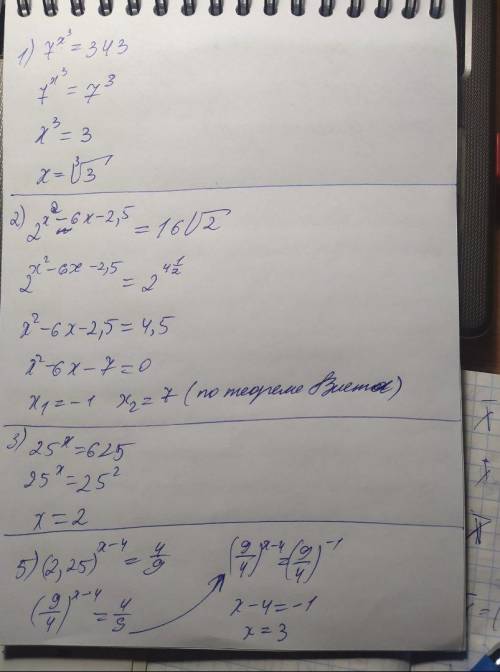 1) 7^{x^3} = 343
7^{x^3} = 7^3
x^3 = 3
x = ∛3
2) 2^{x^2-6x-2,5} = 16√2
2^{x^2-6x-2,5} = 2^{4 1/2}
x^2-6x-2,5 = 4,5
x^2-6x-7 = 0
x_1 = -1 x_2 = 7 (по теореме Виета)
3) 25^x = 625
25^x = 25^2
x = 2
5) (2,25)^{x-4} = 4/9
(9/4)^{x-4} = 4/9
(9/4)^{x-4} = (9/4)^{-1}
x-4 = -1
x = 3